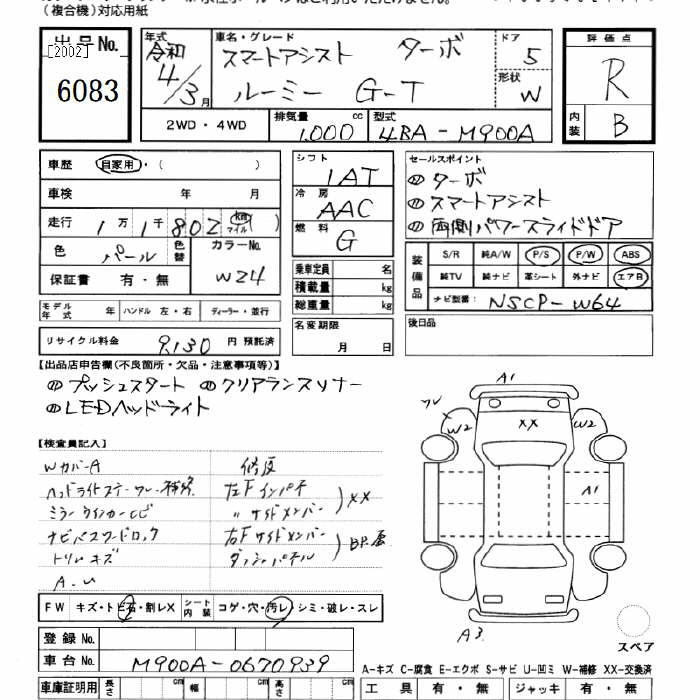 (複合機)対応用紙
出品No.
[2002]
6083
年式 令和 4/3月
車名・グレード スマートアシスト ターボ
ルーミー G-T
ドア 5
形状 W
評価点 R
内装 B
2WD・4WD
排気量 1,000 cc
型式 4BA-M900A
車歴 自家用・( )
車検 年 月
走行 1万1千802 km マイル ( )
色 パール 色替 カラーNo. W24
保証書 有・無
モデル年式 年 ハンドル 左・右 ディーラー・並行
リサイクル料金 9,130 円 預託済
シフト 1AT
冷房 AAC
燃料 G
乗車定員 名
積載量 kg
総重量 kg
名変期限
月 日
セールスポイント
ターボ
スマートアシスト
両側パワースライドドア
装備品
S/R 純A/W P/S P/W ABS
純TV 純ナビ 革シート 外ナビ エアB
ナビ型番: NSCP-W64
後日品
【出品店申告欄(不良箇所・欠品・注意事項等)】
プッシュスタート クリアランスソナー
LEDヘッドライト
【検査員記入】
WカバーA
ミラーウインカー
ナビパスワードロック
トリムキズ
修復
左Fインパネ
〃サイドメンバー XX
右Fサイドメンバー
ダッシュパネル
FW キズ・トビ石・割レX シート内装 コゲ・穴・汚レ・シミ・破レ・スレ
登録No.
車台No. M900A-0670939
車庫証明用 長さ cm 幅 cm 高さ cm
A1
W2
XX
W2
A1
A3
スペア
A-キズ C-腐食 E-エクボ S-サビ U-凹ミ W-補修 XX-交換済
工具 有・無 ジャッキ 有・無